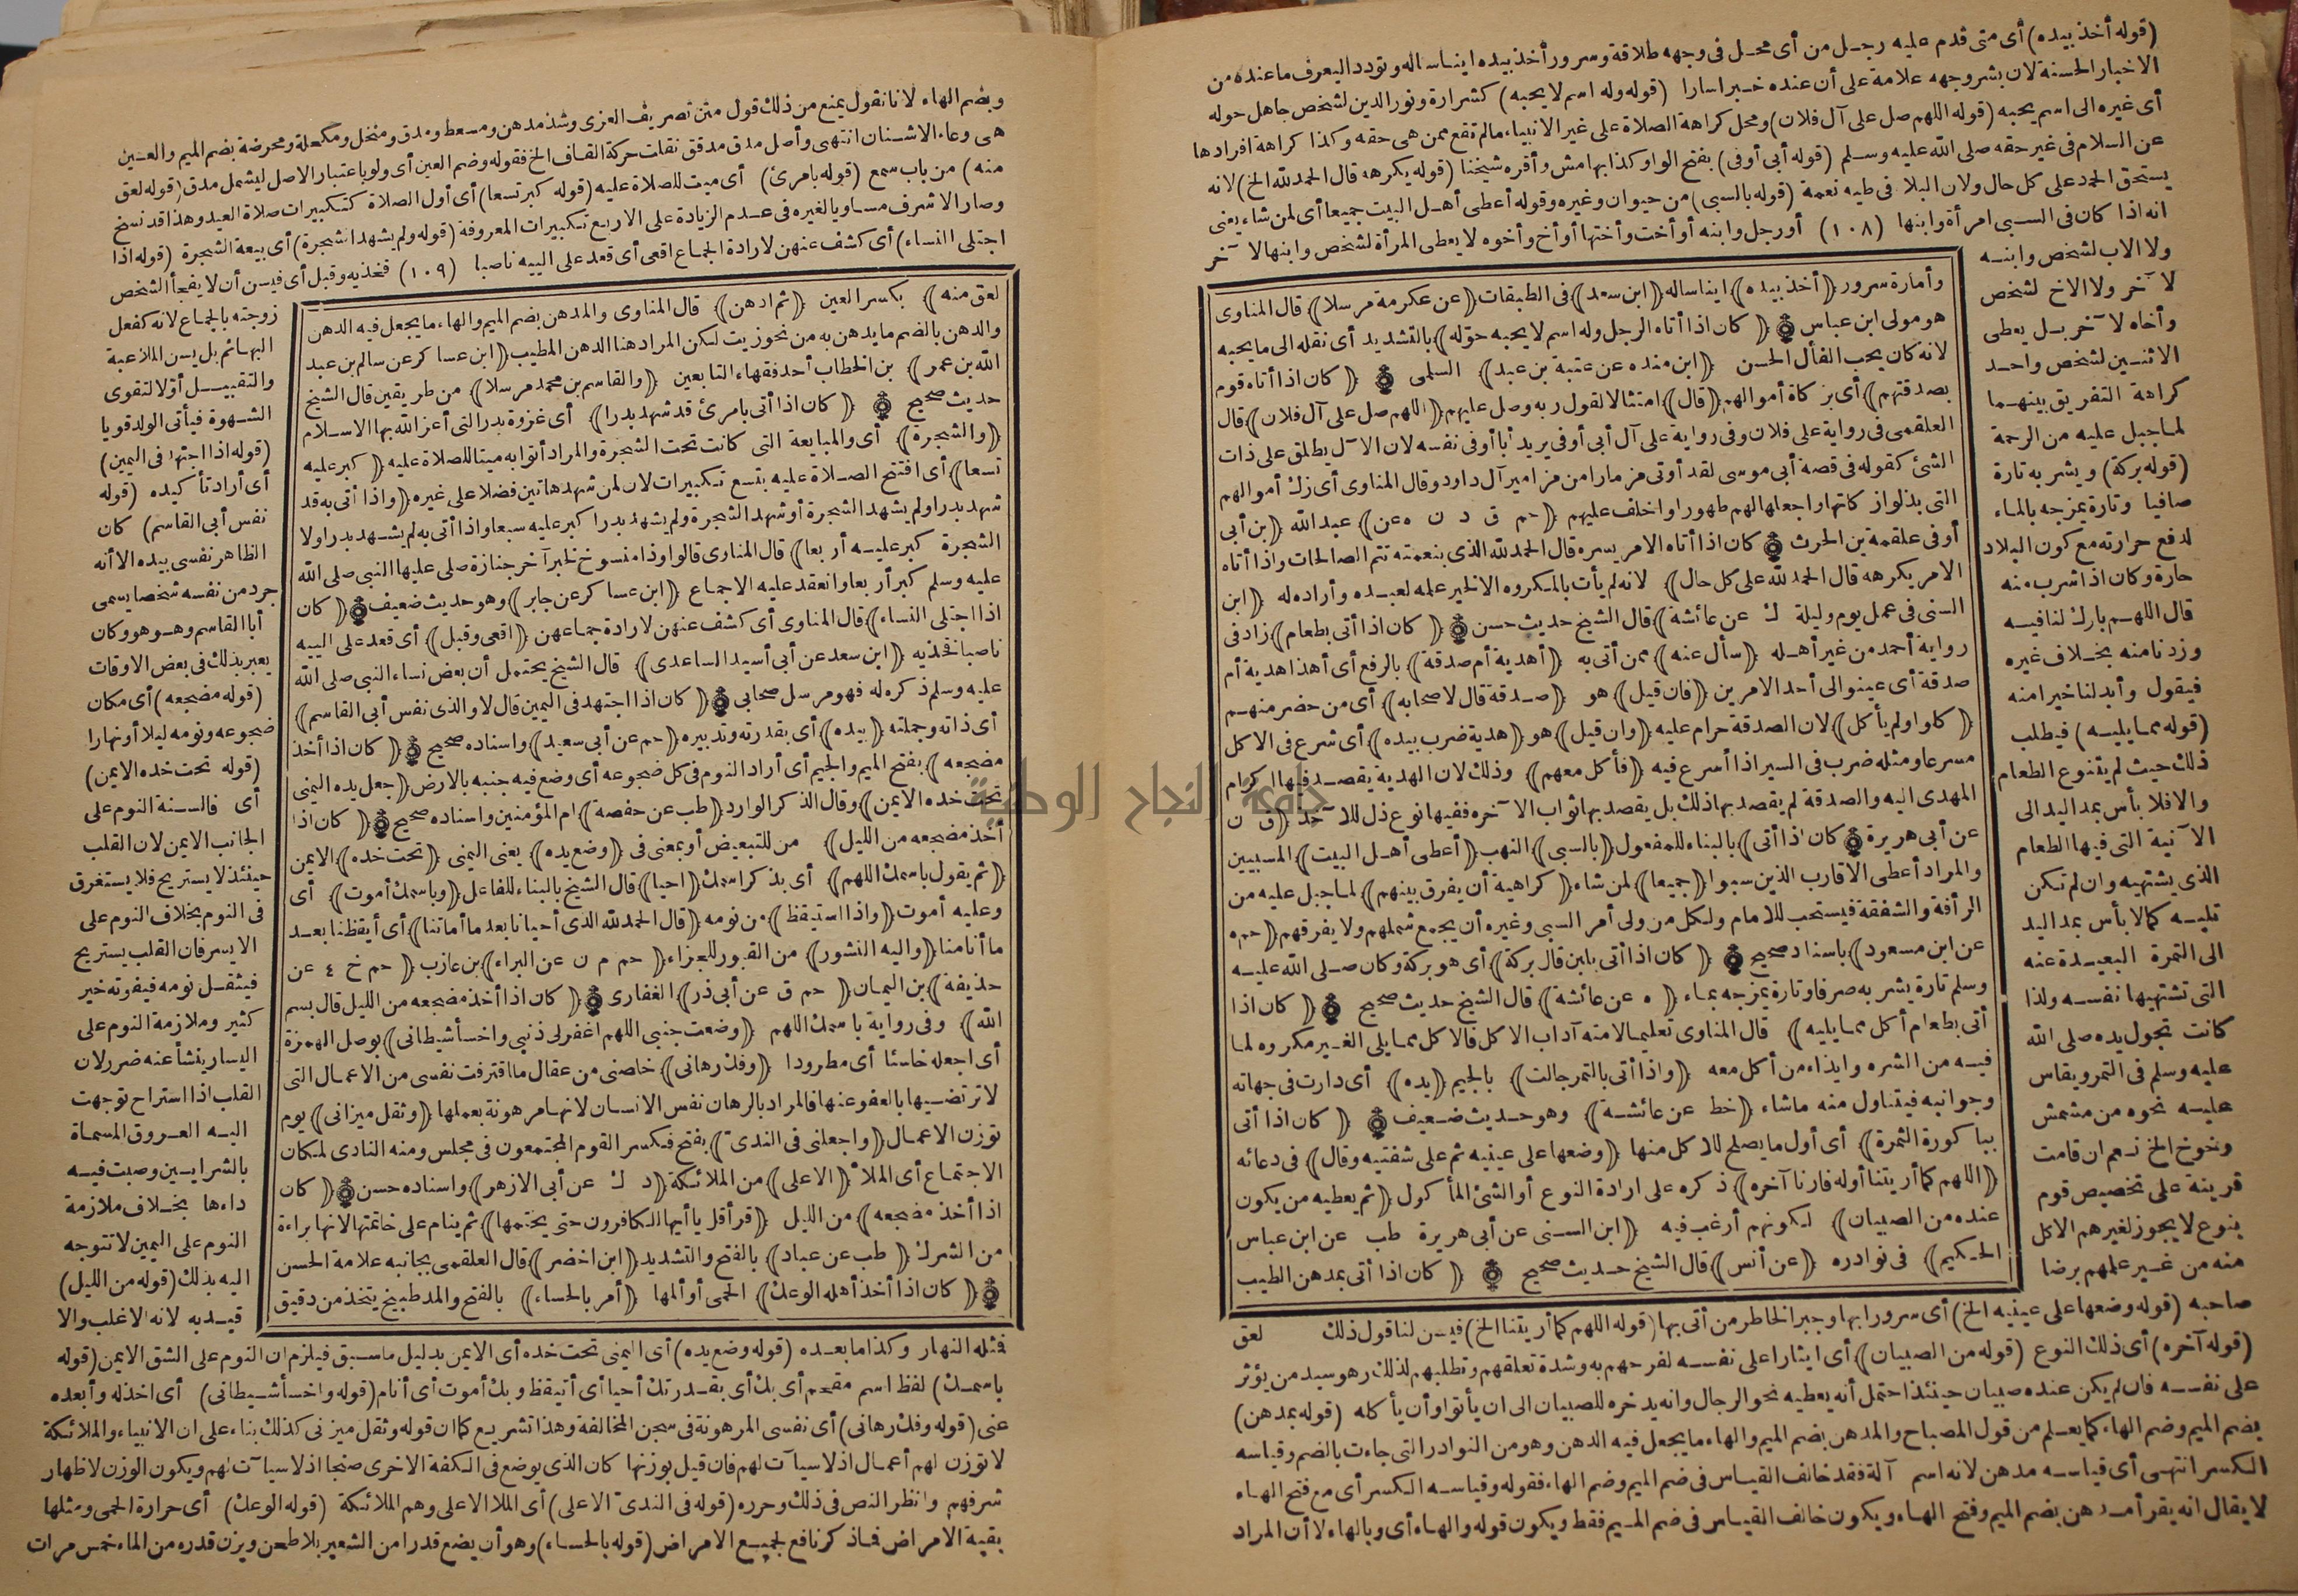 (قوله أخذ بيده) أى متى قدم عليه رجل من أى محل فى وجهه طلاقة وسرور أخذ بيده ايناسا له وتوددا ليعرف ما عنده من
الاخبار الحسنة لان بشر وجهه علامة على أن عنده خبرا سارا (قوله وله اسم لا يحبه) كشرارة ونور الدين لشخص جاهل حوله
أى غيره الى اسم يحبه (قوله اللهم صل على آل فلان) ومحل كراهة الصلاة على غير الانبياء ما لم تقع ممن هى حقه وكذا كراهة افرادها
عن السلام فى غير حقه صلى الله عليه وسلم (قوله أبى أوفى) بفتح الواو كذا بهامش وأقره شيخنا (قوله يكرهه قال الحمد لله الخ) لانه
يستحق الحمد على كل حال ولان البلا فى طيه نعمة (قوله بالسبى) من حيوان وغيره وقوله أعطى أهل البيت جميعا أى لمن شاء يعنى
انه اذا كان فى السبى امرأة وابنها (١٠٨) أو رجل وابنه أو أخت وأختها أو أخ وأخوه لا يعطى المرأة لشخص وابنها لآخر
ولا الاب لشخص وابنه
لآخر ولا الاخ لشخص
وأخاه لآخر بل يعطى
الاثنين لشخص واحد
كراهة التفريق بينهما
لما جبل عليه من الرحمة
(قوله بركة) ويشربه تارة
صافيا وتارة يمزجه بالماء
لدفع حرارته مع كون البلاد
حارة وكان اذا شرب منه
قال اللهم بارك لنا فيه
وزدنا منه بخلاف غيره
فيقول وأبدلنا خيرا منه
(قوله مما يليه) فيطلب
ذلك حيث لم يتنوع الطعام
والا فلا بأس بمد اليد الى
الآنية التى فيها الطعام
الذى يشتهيه وان لم تكن
تليه كما لا بأس بمد اليد
الى التمرة البعيدة عنه
التى تشتهيها نفسه ولذا
كانت تجول يده صلى الله
عليه وسلم فى التمر ويقاس
عليه نحوه من مشمش
وخوخ الخ نعم ان قامت
قرينة على تخصيص قوم
بنوع لا يجوز لغيرهم الاكل
منه من غير علمهم برضا
وأمارة سرور (أخذ بيده) ايناسا له (ابن سعد) فى الطبقات (عن عكرمة مرسلا) قال المناوى
هو مولى ابن عباس (كان اذا أتاه الرجل وله اسم لا يحبه حوّله) بالتشديد أى نقله الى ما يحبه
لانه كان يحب الفأل الحسن (ابن منده عن عتبة بن عبد) السلمى (كان اذا أتاه قوم
بصدقتهم) أى بزكاة أموالهم (قال) امتثالا لقول ربه وصل عليهم (اللهم صل على آل فلان) قال
العلقمى فى رواية على فلان وفى رواية على آل أبى أوفى يريد أبا أوفى نفسه لان الآل يطلق على ذات
الشئ كقوله فى قصة أبى موسى لقد أوتى مزمارا من مزامير آل داود وقال المناوى أى زك أموالهم
التى بذلوا زكاتها واجعلها لهم طهورا واخلف عليهم (حم ق د ن ه عن) عبد الله (بن أبى
أوفى علقمة بن الحرث كان اذا أتاه الامر يسره قال الحمد لله الذى بنعمته تتم الصالحات واذا أتاه
الامر يكرهه قال الحمد لله على كل حال) لانه لم يأت بالمكروه الا لخير علمه لعبده وأراده له (ابن
السنى فى عمل يوم وليلة ك عن عائشة) قال الشيخ حديث حسن (كان اذا أتى بطعام) زاد فى
رواية أحمد من غير أهله (سأل عنه) ممن أتى به (أهدية أم صدقة) بالرفع أى أهذا هدية أم
صدقة أى عينوا لى أحد الامرين (فان قيل) هو (صدقة قال لاصحابه) أى من حضر منهم
(كلوا ولم يأكل) لان الصدقة حرام عليه (وان قيل) هو (هدية ضرب بيده) أى شرع فى الاكل
مسرعا ومثله ضرب فى السير اذا أسرع فيه (فأكل معهم) وذلك لان الهدية يقصد فيها اكرام
المهدى اليه والصدقة لم يقصد بها ذلك بل يقصد بها ثواب الآخرة ففيها نوع ذل للآخذ (ق ن
عن أبى هريرة كان اذا أتى) بالبناء للمفعول (بالسبى) النهب (أعطى أهل البيت) المسبيين
والمراد أعطى الاقارب الذين سبوا (جميعا) لمن شاء (كراهية أن يفرق بينهم) لما جبل عليه من
الرأفة والشفقة فيستحب للامام ولكل من ولى أمر السبى وغيره أن يجمع شملهم ولا يفرقهم (حم ه
عن ابن مسعود) باسناد صحيح (كان اذا أتى بلبن قال بركة) أى هو بركة وكان صلى الله عليه
وسلم تارة يشربه صرفا وتارة يمزجه بماء (ه عن عائشة) قال الشيخ حديث صحيح (كان اذا
أتى بطعام أكل مما يليه) قال المناوى تعليما لامته آداب الاكل فالاكل مما يلى الغير مكروه لما
فيه من الشره وايذاء من أكل معه (واذا أتى بالتمر جالت) بالجيم (يده) أى دارت فى جهاته
وجوانبه فيتناول منه ماشاء (خط عن عائشة) وهو حديث ضعيف (كان اذا أتى
بباكورة الثمرة) أى أول ما يصلح للاكل منها (وضعها على عينيه ثم على شفتيه وقال) فى دعائه
(اللهم كما أريتنا أوله فارنا آخره) ذكره على ارادة النوع أو الشئ المأكول (ثم يعطيه من يكون
عنده من الصبيان) لكونهم أرغب فيه (ابن السنى عن أبى هريرة طب عن ابن عباس
الحكيم) فى نوادره (عن أنس) قال الشيخ حديث صحيح (كان اذا أتى بمدهن الطيب
صاحبه (قوله وضعها على عينيه الخ) أى سرورا بها وجبرا لخاطر من أتى بها (قوله اللهم كما أريتنا الخ) فيسن لنا قول ذلك لعق
(قوله آخره) أى ذلك النوع (قوله من الصبيان) أى ايثارا على نفسه لفرحهم به وشدة تعلقهم وتطلبهم لذلك وهو سيد من يؤثر
على نفسه فان لم يكن عنده صبيان حينئذ احتمل أنه يعطيه نحو الرجال وانه يدخره للصبيان الى ان يأتوا وأن يأكله (قوله بمدهن)
بضم الميم وضم الهاء كما يعلم من قول المصباح والمدهن بضم الميم والهاء ما يجعل فيه الدهن وهو من النوادر التى جاءت بالضم وقياسه
الكسر انتهى أى قياسه مدهن لانه اسم آلة فقد خالف القياس فى ضم الميم وضم الهاء فقوله وقياسه الكسر أى مع فتح الهاء
لا يقال انه يقرأ مدهن بضم الميم وفتح الهاء ويكون خالف القياس فى ضم الميم فقط ويكون قوله والهاء أى وبالهاء لا أن المراد
وبضم الهاء لانا نقول يمنع من ذلك قول متن تصريف العزى وشذ مدهن ومسعط ومدق ومنخل ومكحلة ومحرضة بضم الميم والعين
هى وعاء الاشنان انتهى وأصل مدق مدقق نقلت حركة القاف الخ فقوله وضم العين أى ولو باعتبار الاصل ليشمل مدق (قوله لعق
منه) من باب سمع (قوله بامرئ) أى ميت للصلاة عليه (قوله كبر تسعا) أى أول الصلاة كتكبيرات صلاة العيد وهذا قد نسخ
وصار الاشرف مساويا لغيره فى عدم الزيادة على الاربع تكبيرات المعروفة (قوله ولم يشهد الشجرة) أى بيعة الشجرة (قوله اذا
اجتلى النساء) أى كشف عنهن لارادة الجماع اقعى أى قعد على الييه ناصبا (١٠٩) فخذيه وقبل أى فيسن أن لا يفجأ الشخص
زوجته بالجماع لانه كفعل
البهائم بل يسن الملاعبة
والتقبيل أوّلا لتقوى
الشهوة فيأتى الولد قويا
(قوله اذا اجتهد فى اليمين)
أى أراد تأكيده (قوله
نفس أبى القاسم) كان
الظاهر نفسى بيده الا أنه
جرد من نفسه شخصا يسمى
أبا القاسم وهو هو وكان
يعبر بذلك فى بعض الاوقات
(قوله مضجعه) أى مكان
ضجوعه ونومه ليلا أو نهارا
(قوله تحت خده الايمن)
أى فالسنة النوم على
الجانب الايمن لان القلب
حينئذ لا يستريح فلا يستغرق
فى النوم بخلاف النوم على
الايسر فان القلب يستريح
فيثقل نومه فيفوته خير
كثير وملازمة النوم على
اليسار ينشأ عنه ضرر لان
القلب اذا استراح توجهت
اليه العروق المسماة
بالشرايين وصبت فيه
داءها بخلاف ملازمة
النوم على اليمين لا تتوجه
اليه بذلك (قوله من الليل)
قيد به لانه الاغلب والا
لعق منه) بكسر العين (ثم ادهن) قال المناوى والمدهن بضم الميم والهاء ما يجعل فيه الدهن
والدهن بالضم ما يدهن به من نحو زيت لكن المراد هنا الدهن المطيب (ابن عساكر عن سالم بن عبد
الله بن عمر) بن الخطاب أحد فقهاء التابعين (والقاسم بن محمد مرسلا) من طريقين قال الشيخ
حديث صحيح (كان اذا أتى بامرئ قد شهد بدرا) أى غزوة بدر التى أعز الله بها الاسلام
(والشجرة) أى والمبايعة التى كانت تحت الشجرة والمراد أتوا به ميتا للصلاة عليه (كبر عليه
تسعا) أى افتتح الصلاة عليه بتسع تكبيرات لان لمن شهد هاتين فضلا على غيره (واذا أتى به قد
شهد بدرا ولم يشهد الشجرة أو شهد الشجرة ولم يشهد بدرا كبر عليه سبعا واذا أتى به لم يشهد بدرا ولا
الشجرة كبر عليه أربعا) قال المناوى قالوا وذا منسوخ لخبر آخر جنازة صلى عليها النبى صلى الله
عليه وسلم كبر أربعا وانعقد عليه الاجماع (ابن عساكر عن جابر) وهو حديث ضعيف (كان
اذا اجتلى النساء) قال المناوى أى كشف عنهن لارادة جماعهن (اقعى وقبل) أى قعد على الييه
ناصبا فخذيه (ابن سعد عن أبى أسيد الساعدى) قال الشيخ يحتمل أن بعض نساء النبى صلى الله
عليه وسلم ذكره له فهو مرسل صحابى (كان اذا اجتهد فى اليمين قال لا والذى نفس أبى القاسم)
أى ذاته وجملته (بيده) أى بقدرته وتدبيره (حم عن أبى سعيد) واسناده صحيح (كان اذا أخذ
مضجعه) بفتح الميم والجيم أى أراد النوم فى كل ضجوعه أى وضع فيه جنبه بالارض (جعل يده اليمنى
تحت خده الايمن) وقال الذكر الوارد (طب عن حفصة) ام المؤمنين واسناده صحيح (كان اذا
أخذ مضجعه من الليل) من للتبعيض أو بمعنى فى (وضع يده) يعنى اليمنى (تحت خده) الايمن
(ثم يقول باسمك اللهم) أى بذكر اسمك (احيا) قال الشيخ بالبناء للفاعل (وباسمك أموت) أى
وعليه أموت (واذا استيقظ) من نومه (قال الحمد لله الذى أحيانا بعد ما أماتنا) أى أيقظنا بعد
ما أنامنا (واليه النشور) من القبور للجزاء (حم م ن عن البراء) بن عازب (حم خ ٤ عن
حذيفة) بن اليمان (حم ق عن أبى ذر) الغفارى (كان اذا أخذ مضجعه من الليل قال بسم
الله) وفى رواية باسمك اللهم (وضعت جنبى اللهم اغفر لى ذنبى واخسأ شيطانى) بوصل الهمزة
أى اجعله خاسئا أى مطرودا (وفك رهانى) خلصنى من عقال ما اقترفت نفسى من الاعمال التى
لا ترتضيها بالعفو عنها فالمراد بالرهان نفس الانسان لانها مرهونة بعملها (وثقل ميزانى) يوم
توزن الاعمال (واجعلنى فى الندىّ) بفتح فكسر القوم المجتمعون فى مجلس ومنه النادى لمكان
الاجتماع أى الملأ (الاعلى) من الملائكة (د ك عن أبى الازهر) واسناده حسن (كان
اذا أخذ مضجعه) من الليل (قرأ قل يا أيها الكافرون حتى يختمها) ثم ينام على خاتمتها لانها براءة
من الشرك (طب عن عباد) بالفتح والتشديد (ابن اخضر) قال العلقمى بجانبه علامة الحسن
(كان اذا أخذ أهله الوعك) الحمى أو ألمها (أمر بالحساء) بالفتح والمد طبيخ يتخذ من دقيق
فثله النهار وكذا ما بعده (قوله وضع يده) أى اليمنى تحت خده أى الايمن بدليل ما سبق فيلزم ان النوم على الشق الايمن (قوله
باسمك) لفظ اسم مقحم أى بك أى بقدرتك أحيا أى أتيقظ وبك أموت أى أنام (قوله واخسأ شيطانى) أى اخذله وأبعده
عنى (قوله وفك رهانى) أى نفسى المرهونة فى سجن المخالفة وهذا تشريع كما ان قوله وثقل ميزنى كذلك بناء على ان الانبياء والملائكة
لا توزن لهم أعمال اذ لا سيآت لهم فان قيل بوزنها كان الذى يوضع فى الكفة الاخرى صنجا اذ لا سيآت لهم ويكون الوزن لاظهار
شرفهم وانظر النص فى ذلك وحرره (قوله فى الندىّ الاعلى) أى الملا الاعلى وهم الملائكة (قوله الوعك) أى حرارة الحمى ومثلها
بقية الامراض فما ذكر نافع لجميع الامراض (قوله بالحساء) وهو أن يضع قدرا من الشعير بلا طحن ويزن قدره من الماء خمس مرات
جامعة النجاح الوطنية